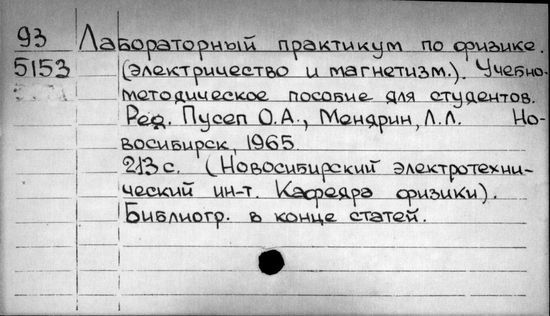 93 Лабораторный практикум по физике.
5153 (электричество и магнетизм.). Учебно-
методическое пособие для студентов.
Ред. Пусеп О.А., Мендрин, Л.Л. Но-
восибирск, 1965.
213 с. (Новосибирский электротехни-
ческий ин-т. Кафедра физики).
Библиогр. в конце статей.